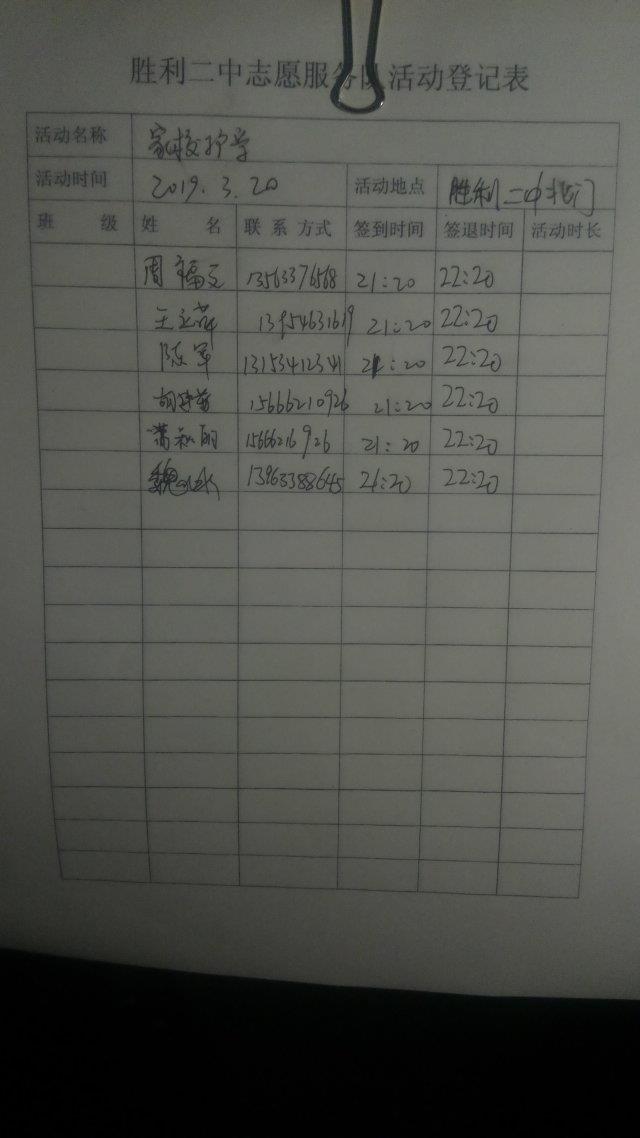 胜利二中志愿服务队活动登记表
活动名称 家校护学
活动时间 2019.3.20 活动地点 胜利二中北门
班级 姓名 联系方式 签到时间 签退时间 活动时长
周福立 13563376568 21:20 22:20
王立萍 13954631619 21:20 22:20
陈军 13153412341 21:20 22:20
15666210926 21:20 22:20
萧秋丽 15666216926 21:20 22:20
魏 13963388645 21:20 22:20